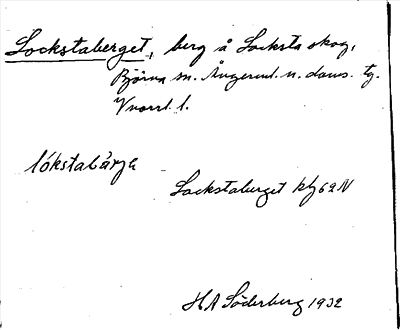 Lockstaberget, berg å Locksta skog,
Björna sn. Ångerml. n. doms. tg.
Vnorrl. l.
lókstabàrje
Lockstaberget kbg 62 N
H A Söderberg 1932